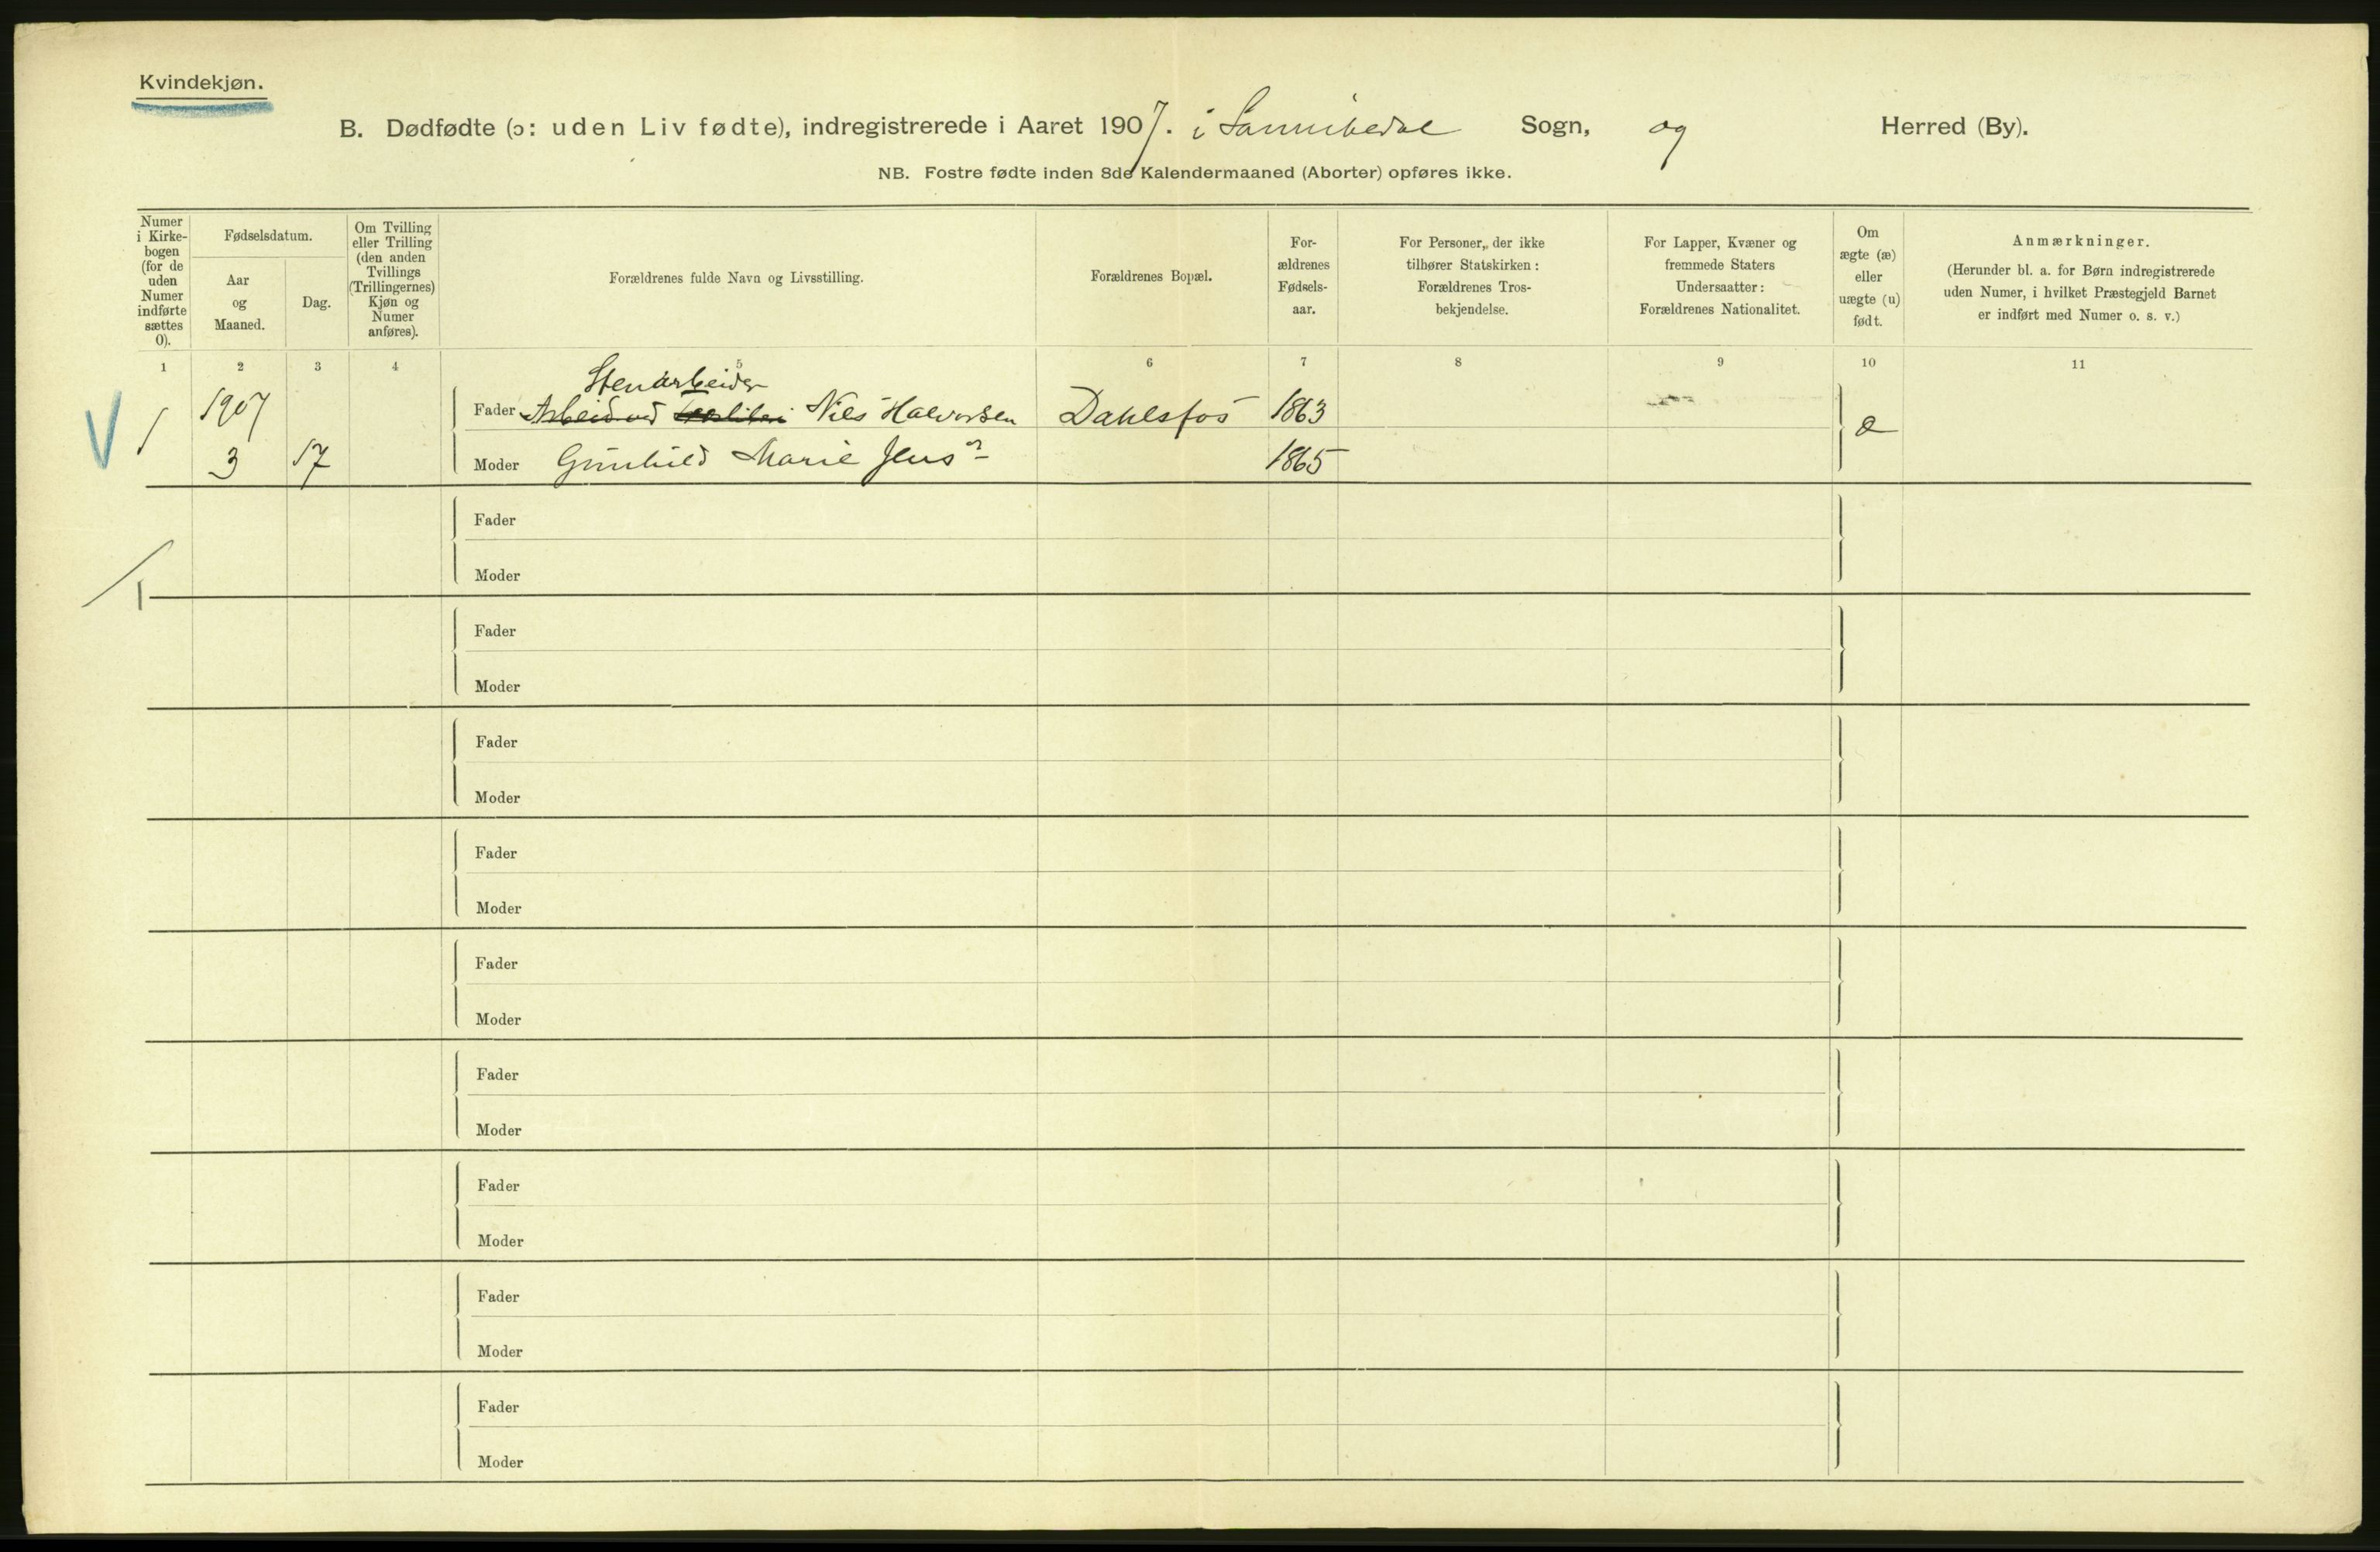 Kvindekjøn.
B. Dødfødte (ɔ: uden Liv fødte), indregistrerede i Aaret 1907. i Sannikedal Sogn, og Herred (By).
NB. Fostre fødte inden 8de Kalendermaaned (Aborter) opføres ikke.
Numer i Kirke-bogen (for de uden Numer indførte sættes 0).
Fødselsdatum.
Aar og Maaned.
Dag.
Om Tvilling eller Trilling (den anden Tvillings (Trillingernes) Kjøn og Numer anføres).
Forældrenes fulde Navn og Livsstilling.
Forældrenes Bopæl.
For-ældrenes Fødsels-aar.
For Personer, der ikke tilhører Statskirken: Forældrenes Tros-bekjendelse.
For Lapper, Kvæner og fremmede Staters Undersaatter: Forældrenes Nationalitet.
Om ægte (æ) eller uægte (u) født.
Anmærkninger.
(Herunder bl. a. for Børn indregistrerede uden Numer, i hvilket Præstegjeld Barnet er indført med Numer o. s. v.)
1 2 3 4 5 6 7 8 9 10 11
Stenarbeider
1 1907 Fader Arbeid ved Niels Halvorsen Dahlsfos 1863 æ
3 17 Moder Gunhild Marie Jensn 1865
Fader
Moder
1
Fader
Moder
Fader
Moder
Fader
Moder
Fader
Moder
Fader
Moder
Fader
Moder
Fader
Moder
Fader
Moder